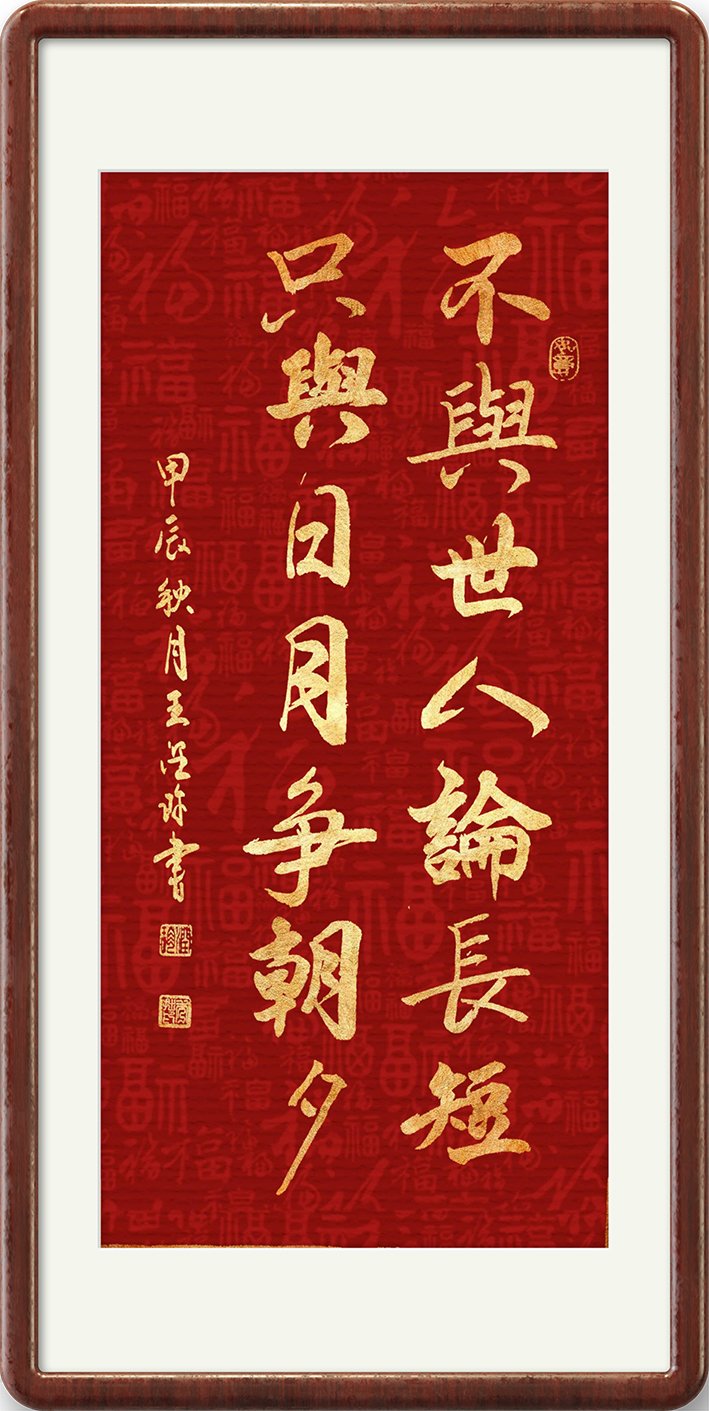 不與世人論長短
只與日月争朝夕
甲辰秋月王
書